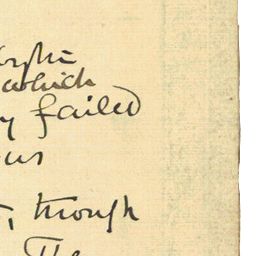 which
y failed
us
, though
The